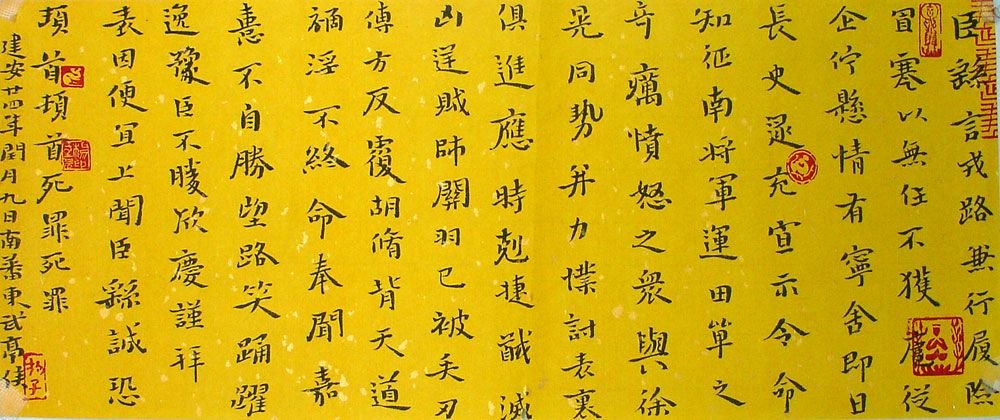 臣繇言戎路兼行履險
冒寒以無任不獲扈從
企佇懸情有寧舍即日
長史逯充宣示令命
知征南將軍運田單之
奇癘憤怒之衆與徐
晃同勢并力撲討表裏
俱進應時剋捷馘滅
凶逆賊帥關羽已被矢刃
傅方反覆胡脩背天道
禍淫不終命奉聞嘉
憙不自勝望路笑踊躍
逸豫臣不勝欣慶謹拜
表因便宜上聞臣繇誠恐
頓首頓首死罪死罪
建安廿四年閏月九日南蕃東武亭侯